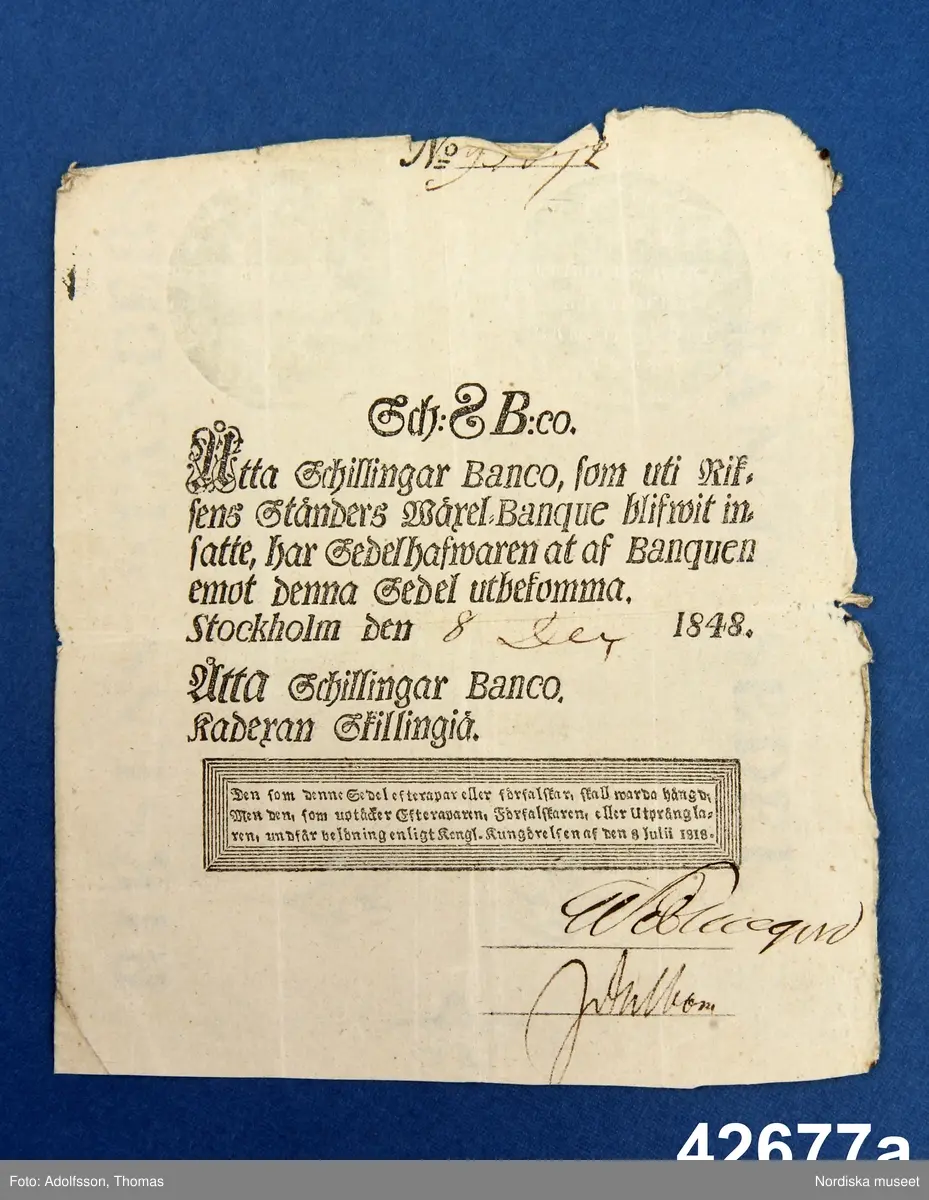 No
Sch: 8 B:co.
Åtta Schillingar Banco, som uti Rik-
sens Ständers Wäxel-Banque blifwit in-
satte, har Sedelhafwaren at af Banquen
emot denna Sedel utbekomma.
Stockholm den 8 Dec 1848.
Åtta Schillingar Banco.
Kadexan Skillingiä.
Den som denne Sedel efterapar eller förfalskar, skall warda hängd,
Men den, som uptäcker Efteraparen, Förfalskaren, eller Utprångla-
ren, undfår belöning enligt Kongl. Kungörelsen af den 8 Julii 1818.
42677a
Foto: Adolfsson, Thomas
Nordiska museet